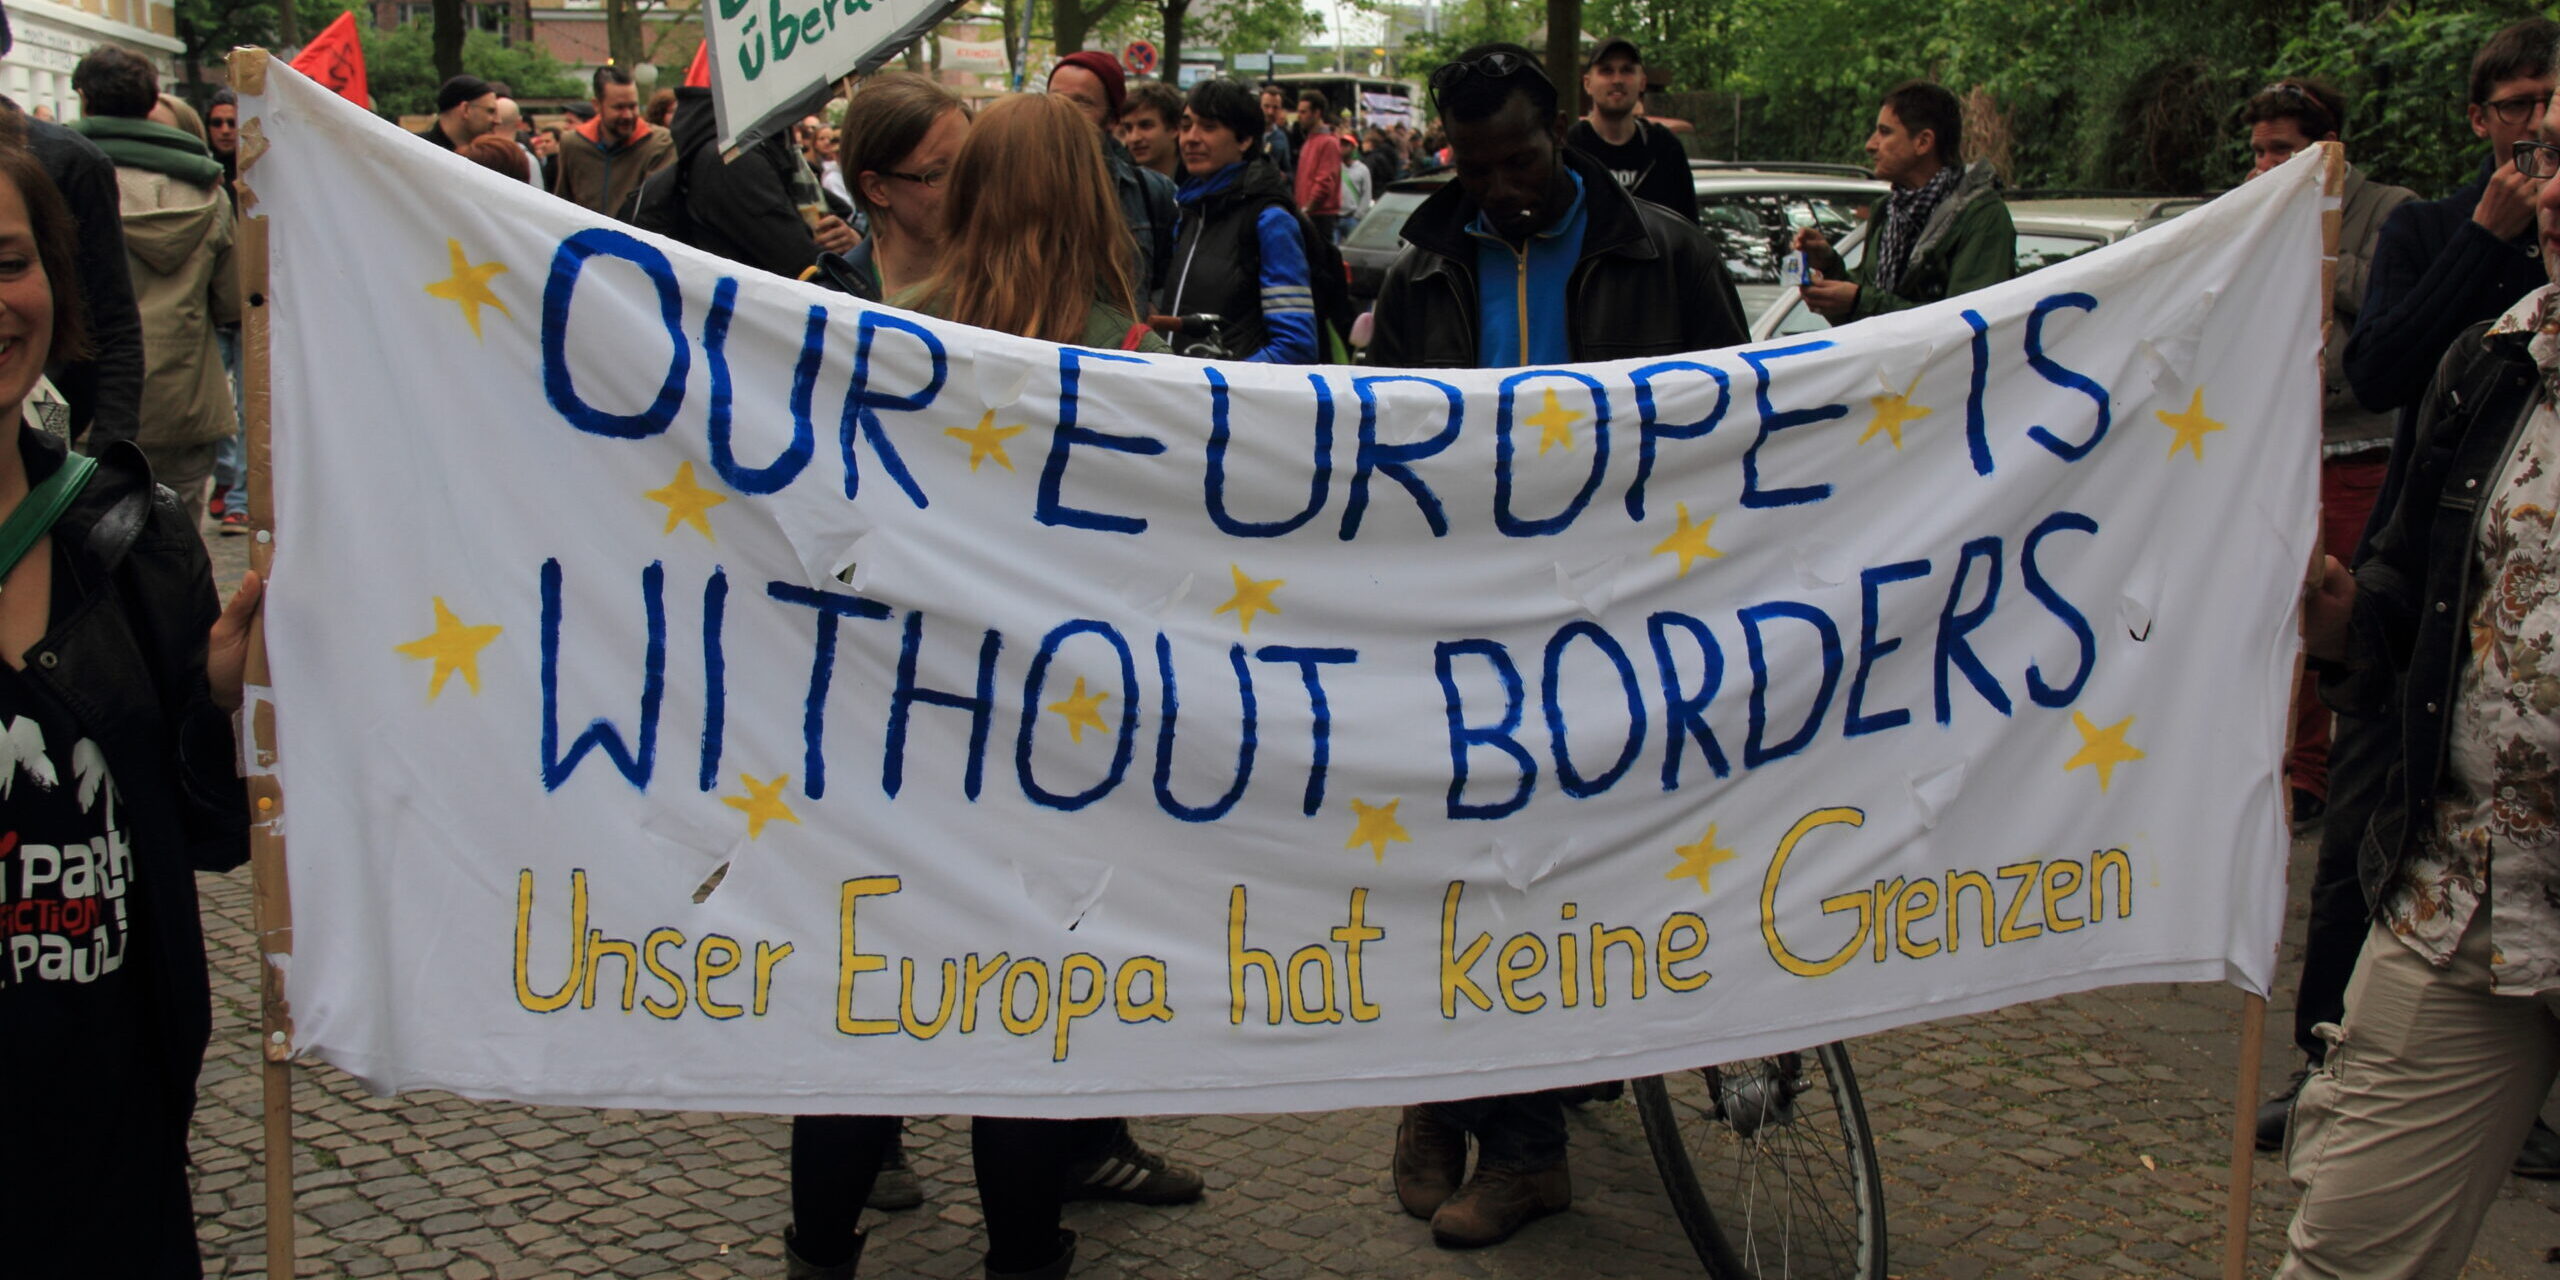 übera
OUR EUROPE IS
WITHOUT BORDERS
Unser Europa hat keine Grenzen
PARK
FICTION
PAULI